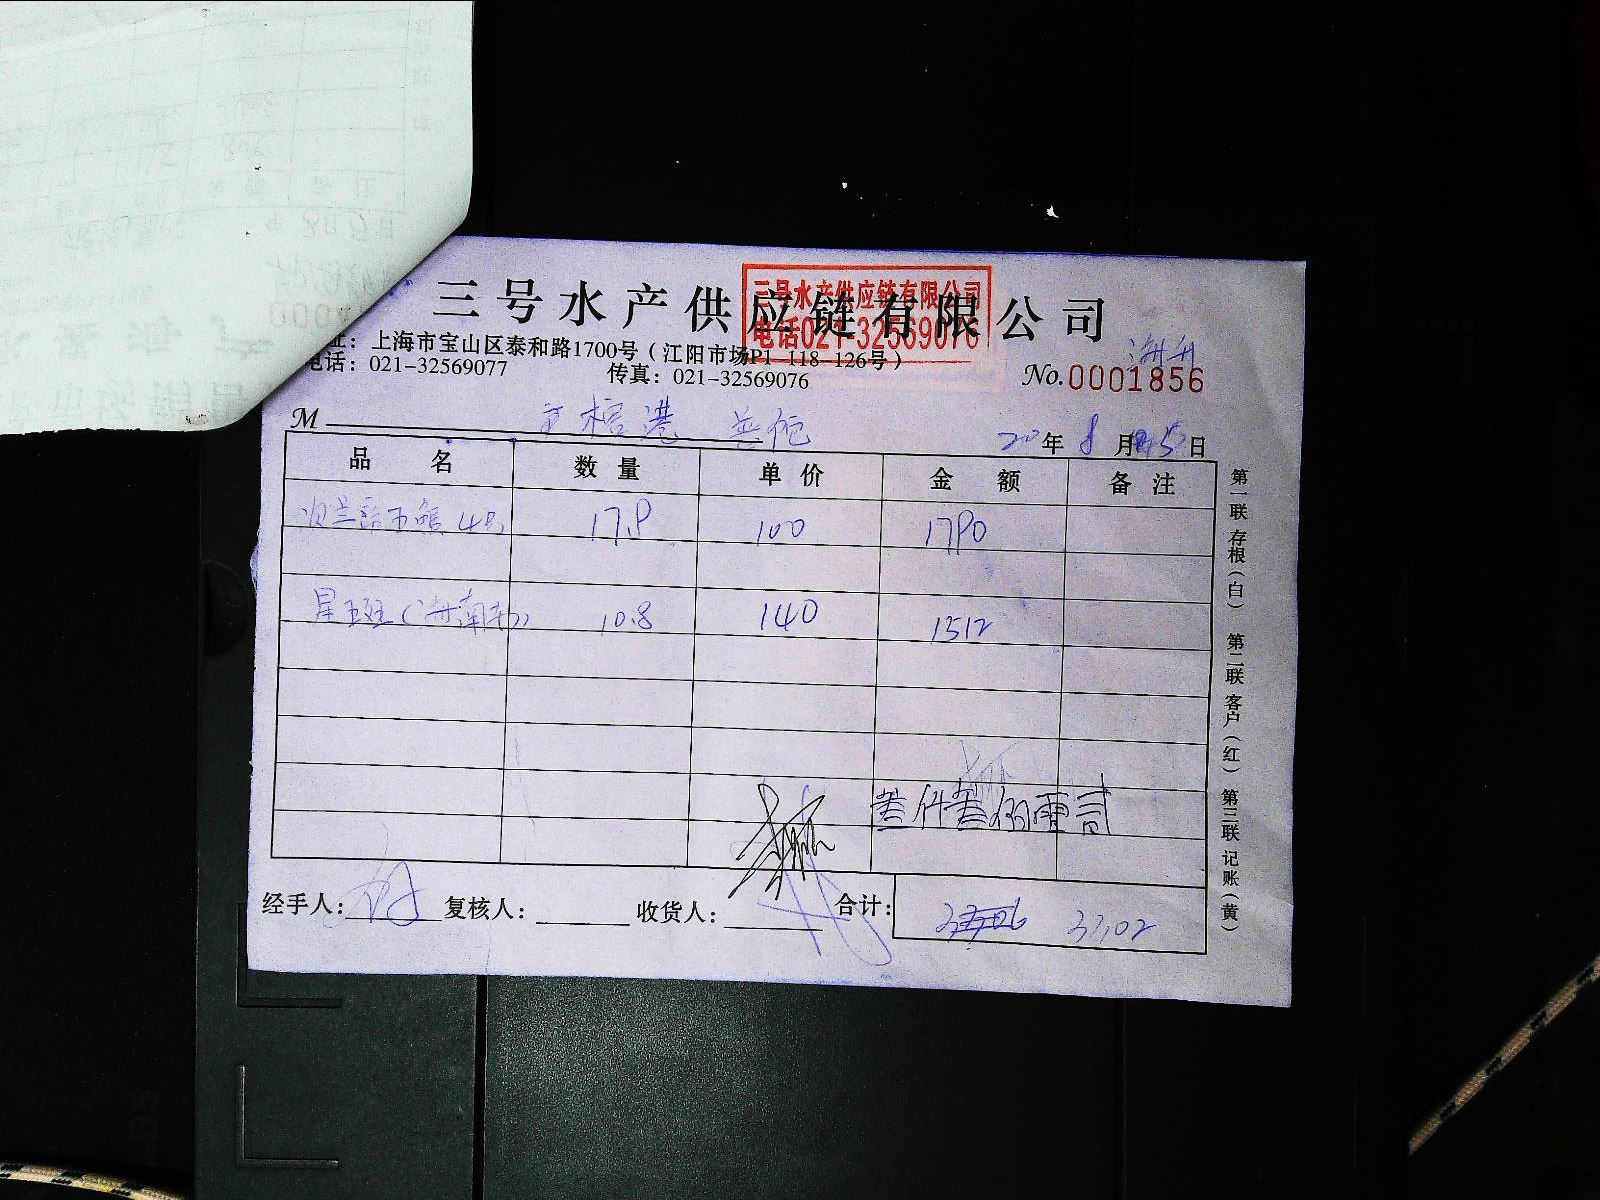 三号水产供应链有限公司
三号水产供应链有限公司
电话021-32569076
址：上海市宝山区泰和路1700号（江阳市场P1-118-126号）
电话：021-32569077 传真：021-32569076
No.0001856
M
年 8 月 5 日
品 名 数 量 单 价 金 额 备 注
17.9 100 1790
星斑（海南） 10.8 140 1512
叁仟叁佰零贰
经手人： 复核人： 收货人： 合计： 3302
第一联 存根（白） 第二联 客户（红） 第三联 记账（黄）